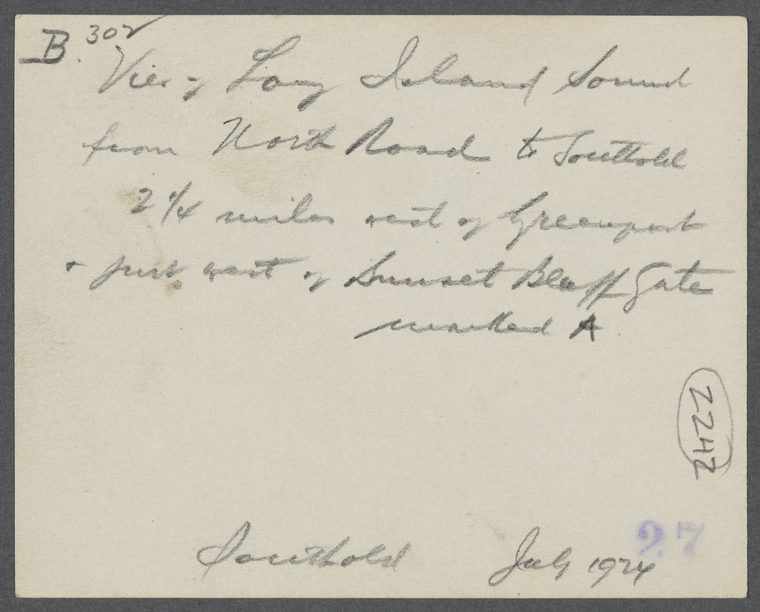 B. 302
View of Long Island Sound
from North Road to Southold
2 1/4 miles west of Greenport
+ just west of Sunset Bluff Gate
marked A
2242
27
Southold July 1924